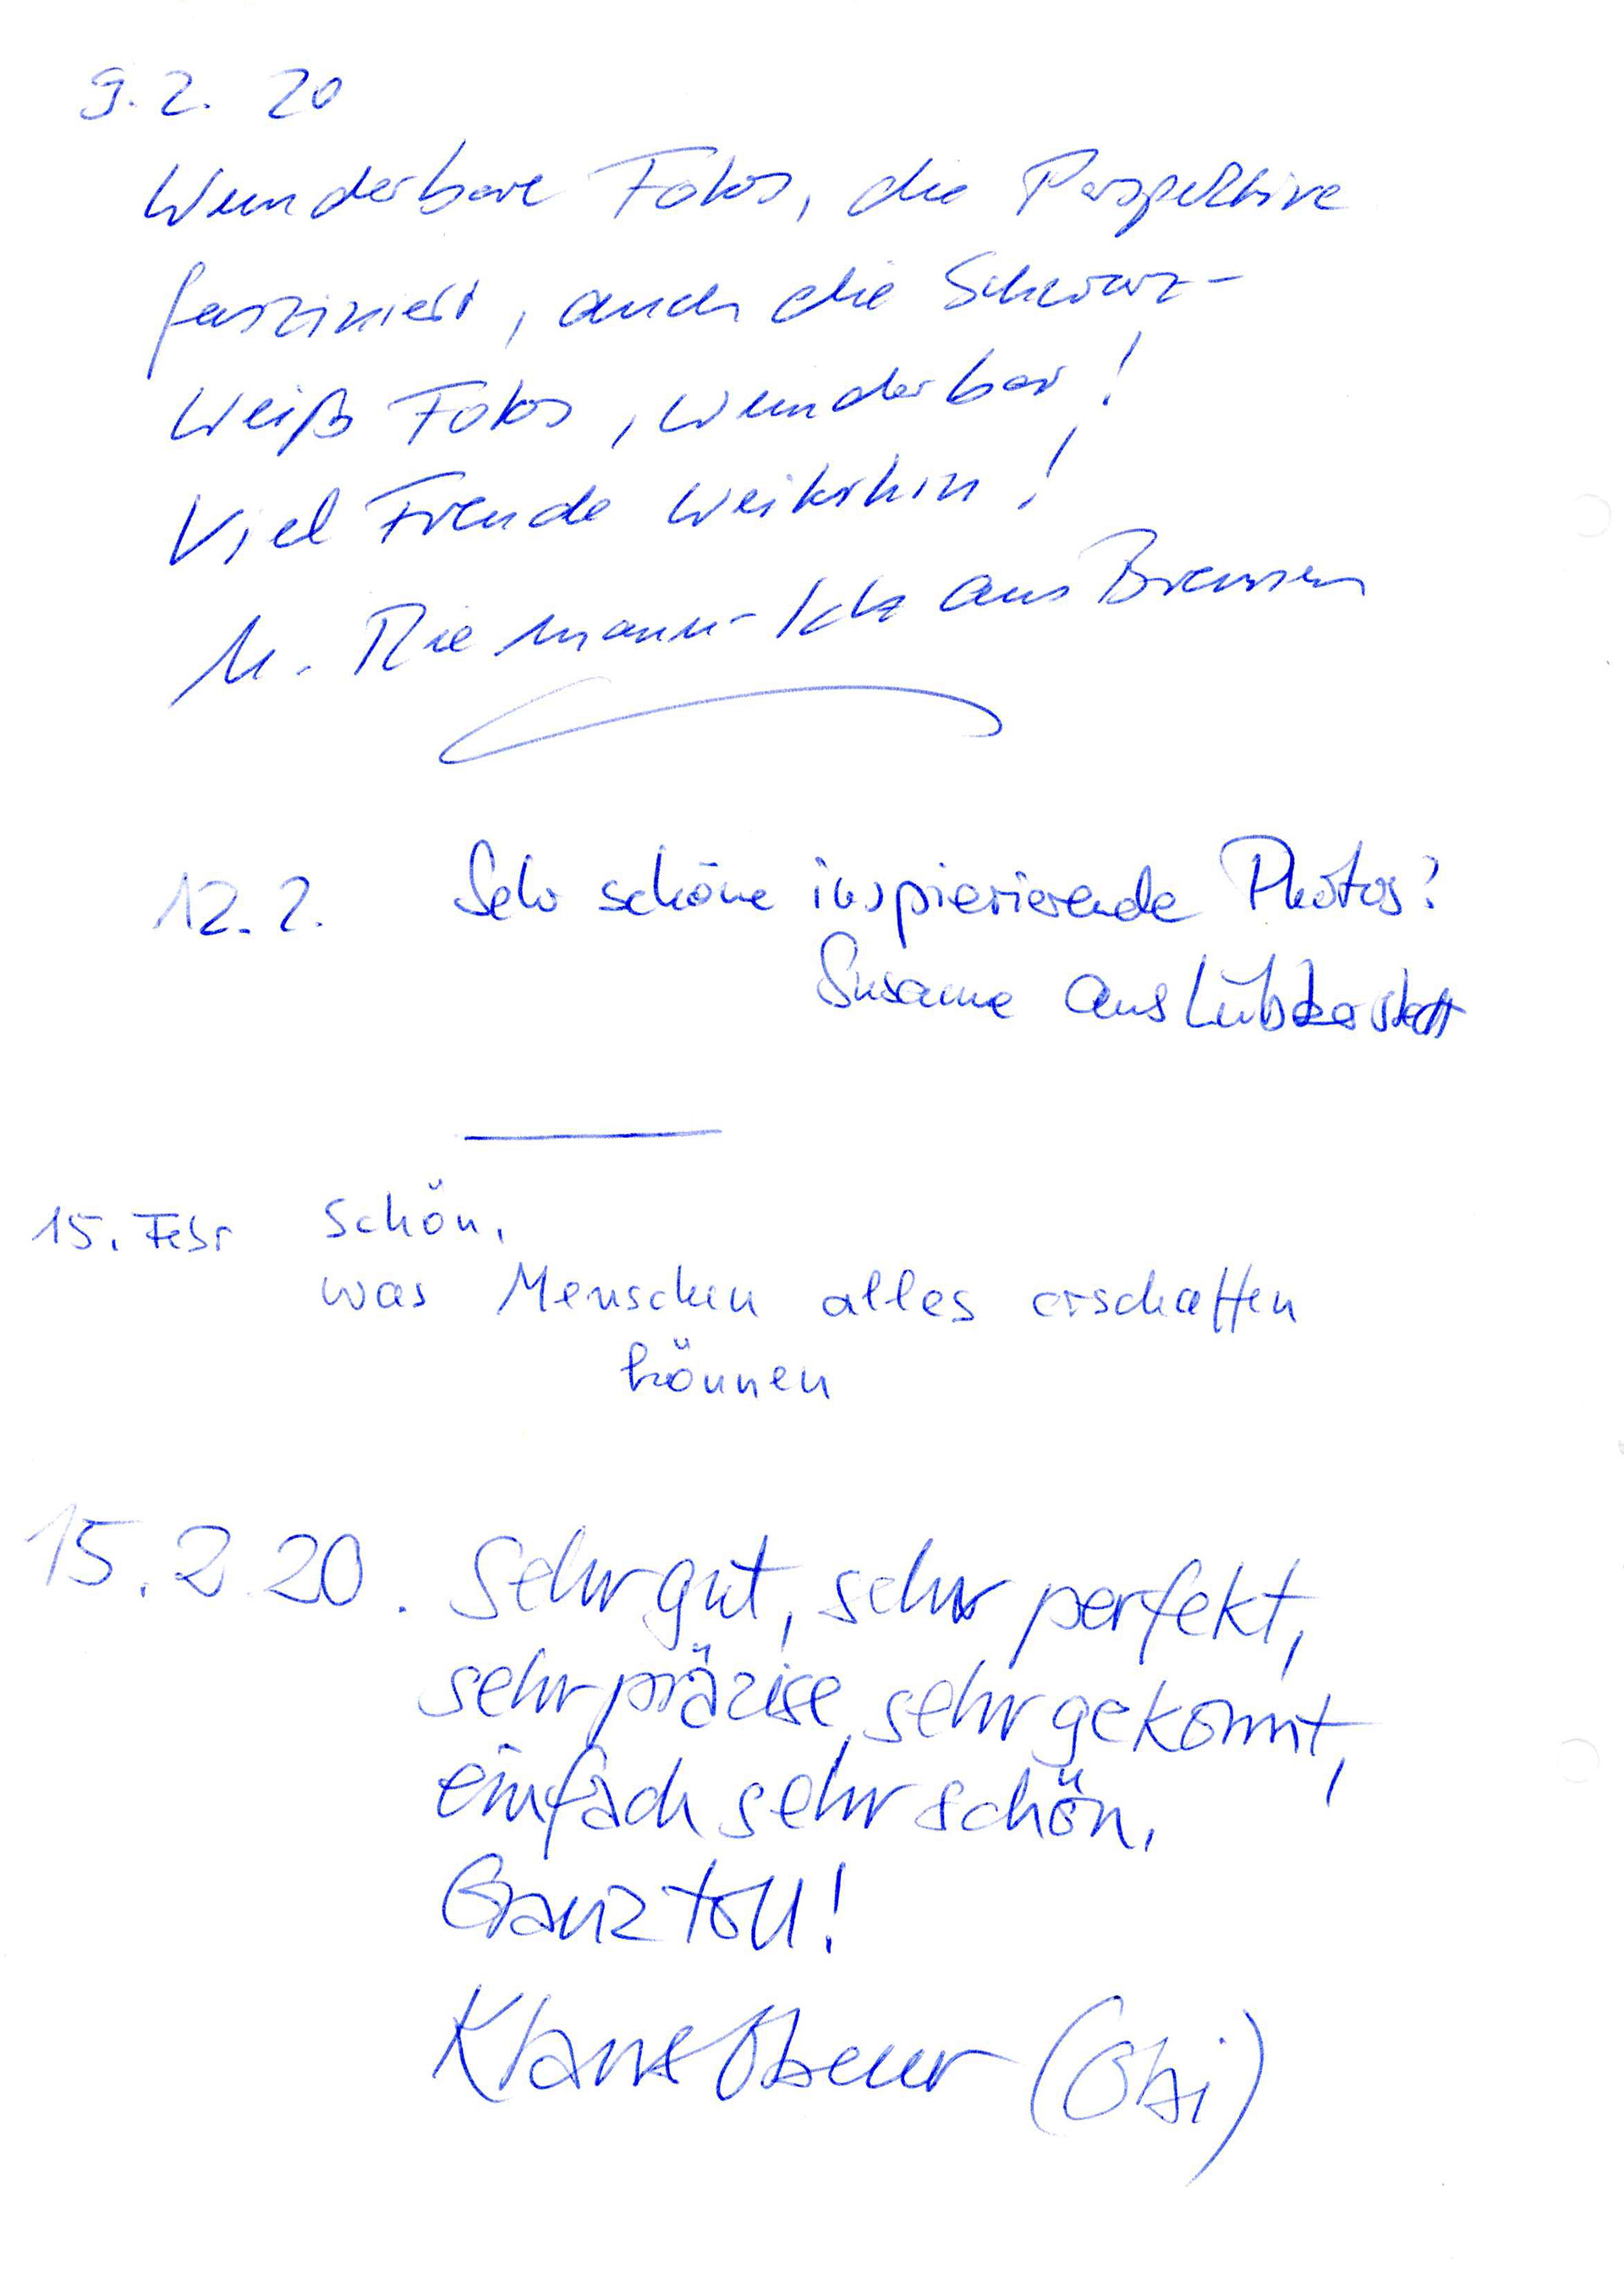 9. 2. 20
Wunderbare Fotos, die Perspektive
fasziniert, auch die Schwarz-
Weiß Fotos, wunderbar!
Viel Freude weiterhin!
M. Riemann- aus Bremen
12. 2. Sehr schöne inspierierende Photos!
Susanne aus Lübberstedt
15. Febr schön,
was Menschen alles erschaffen
können
15. 2. 20. Sehr gut, sehr perfekt,
sehr präzise, sehr gekonnt,
einfach sehr schön,
Ganz toll!
Klaus (Obi)